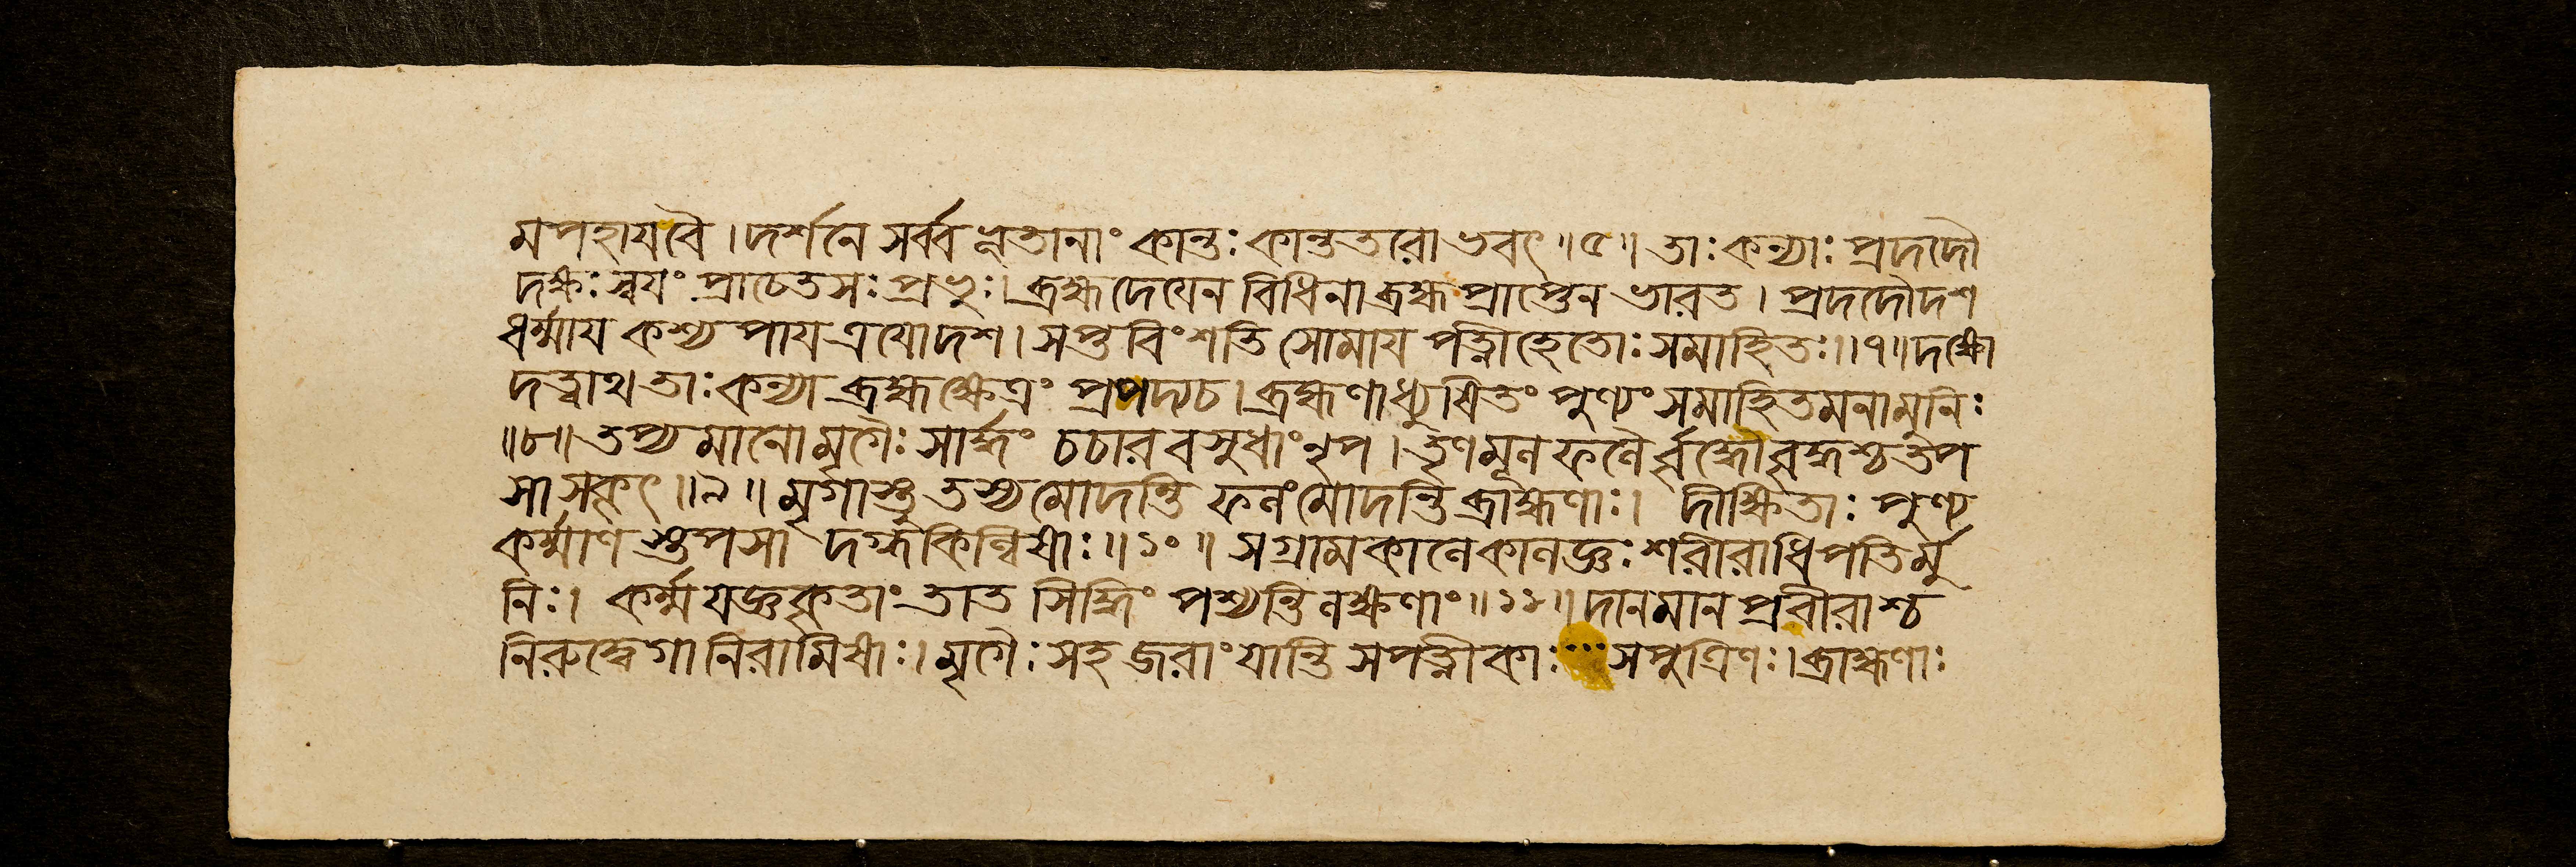 মপহাযবৈ । দর্শনে সর্ব্বভূতানাং কান্তঃ কান্ততরোভবৎ ॥৫॥ তাঃ কন্যাঃ প্রদদৌ
দক্ষঃ স্বযং প্রাচেতসঃ প্রভুঃ । ব্রহ্মদেযেন বিধিনা ব্রহ্মপ্রাপ্তেন ভারত । প্রদদৌদশ
ধর্ম্মায কশ্যপায ত্রযোদশ । সপ্তবিংশতি সোমায পত্নীহেতোঃ সমাহিতঃ ॥৭॥ দক্ষো
দত্ত্বাথ তাঃ কন্যা ব্রহ্মক্ষেত্রং প্রপদ্যচ । ব্রহ্মণাধ্যুষিতং পুণ্যং সমাহিতমনামুনিঃ
॥৮॥ তপ্যমানো মৃগৈঃ সার্দ্ধং চচার বসুধাং নৃপ । তৃণমূল ফলৈর্ব্বৃদ্ধৈর্ব্বৃদ্ধশ্চতপ
সাসকৃৎ ॥৯॥ মৃগাস্তু তস্যমোদন্তি ফলংমোদন্তি ব্রাহ্মণাঃ । দীক্ষিতাঃ পুণ্য
কর্ম্মাণস্তপসা দগ্ধকিল্বিষাঃ ॥১০॥ সগ্রামকানেকালজ্ঞঃ শরীরাধিপতির্মু
নিঃ । কর্ম্মযজ্ঞকৃতাং তাত সিদ্ধিং পশ্যন্তিলক্ষণাং ॥১১॥ দানমান প্রবীরাশ্চ
নিরুদ্বেগা নিরামিষাঃ । মৃগৈঃ সহ জরাং যান্তি সপত্নীকাঃ সপুত্রিণঃ । ব্রাহ্মণাঃ